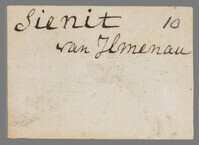 Sienit 10
van Ilmenau